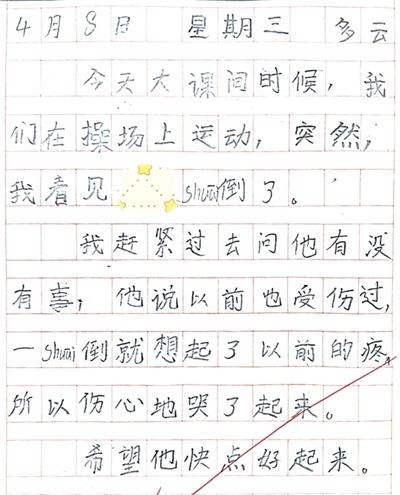 4月8日 星期三 多云
今天大课间时候,我
们在操场上运动,突然,
我看见 shuai倒了。
我赶紧过去问他有没
有事,他说以前也受伤过,
一shuai倒就想起了以前的疼,
所以伤心地哭了起来。
希望他快点好起来。